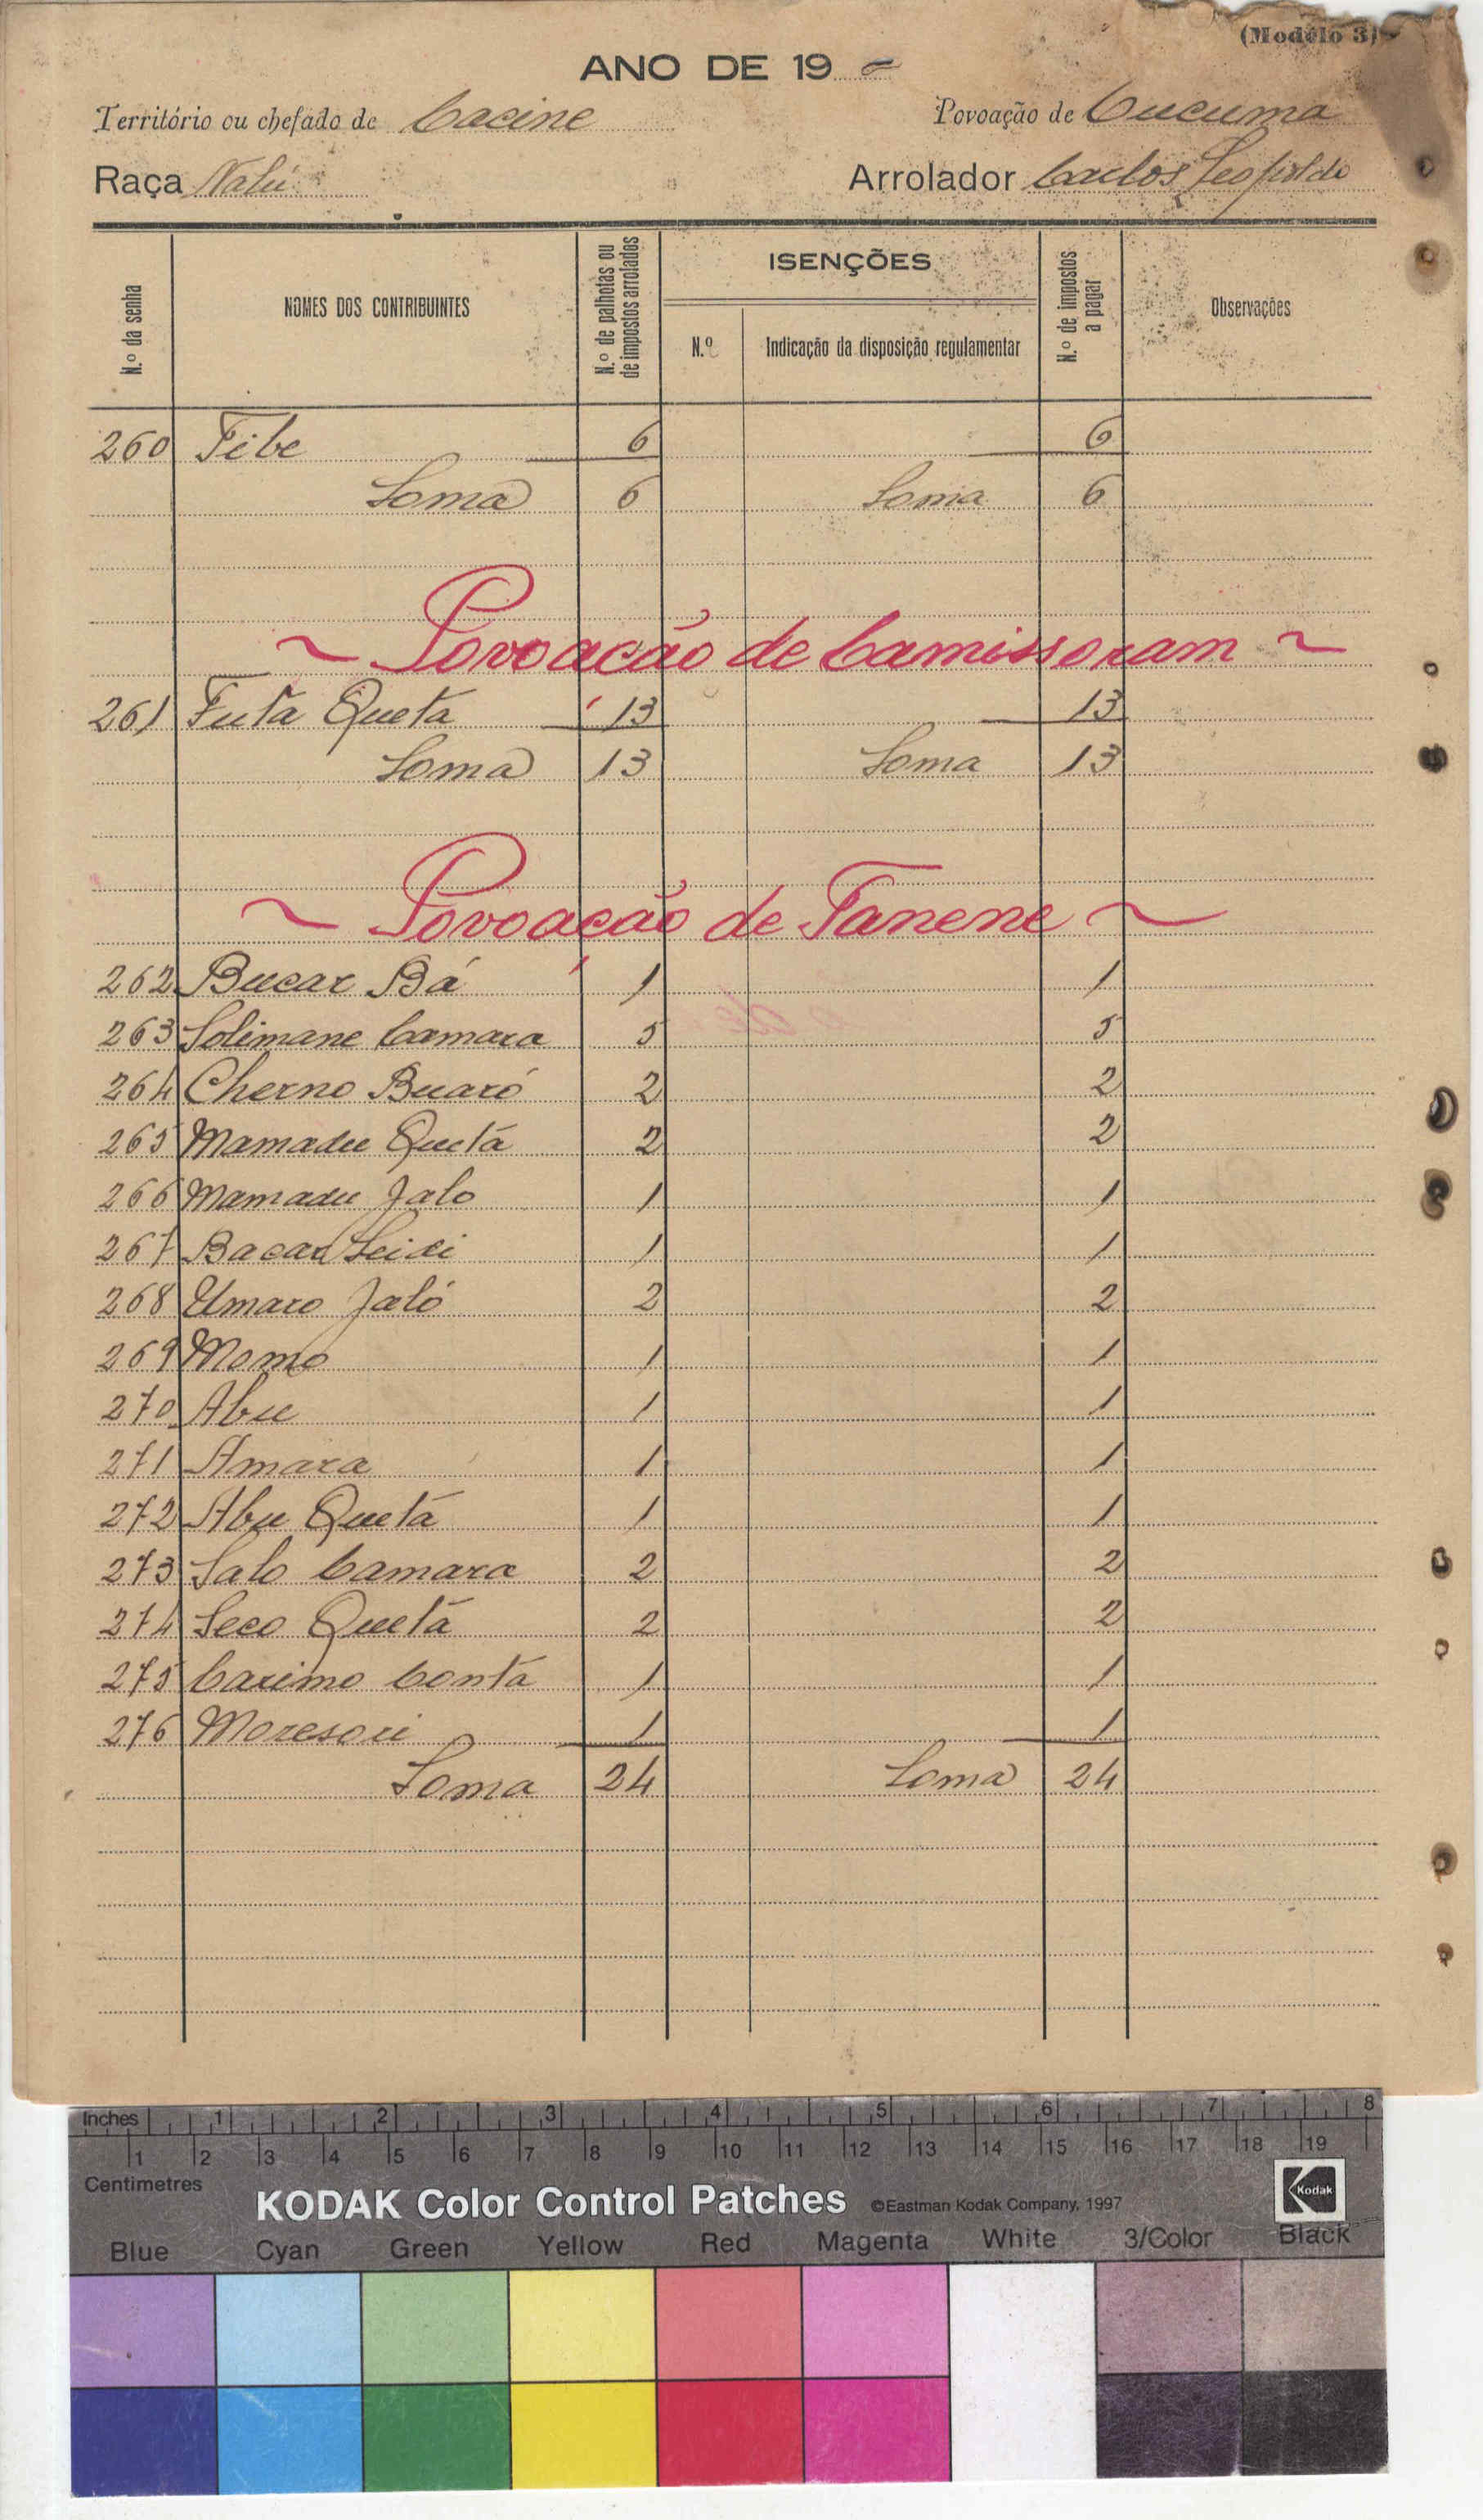 (Modêlo 3)
ANO DE 19 -
Território ou chefado de Cacine Povoação de Cucuma
Raça Nalú Arrolador Carlos Leopoldo
N.º da senha NOMES DOS CONTRIBUINTES N.º de palhotas ou de impostos arrolados ISENÇÕES N.º Indicação da disposição regulamentar N.º de impostos a pagar Observações
260 Fibe 6 6
Soma 6 Soma 6
~ Povoação de Camissoram ~
261 Futa Queta 13 13
Soma 13 Soma 13
~ Povoação de Tanene ~
262 Bucar Bá 1 1
263 Solimane Camara 5 5
264 Cherno Buaró 2 2
265 Mamadu Quetá 2 2
266 Mamadu Jalo 1 1
267 Bacar Seidi 1 1
268 Umaro Jaló 2 2
269 Momo 1 1
270 Abu 1 1
271 Amara 1 1
272 Abu Quetá 1 1
273 Salo Camara 2 2
274 Seco Quetá 2 2
275 Carimo Contá 1 1
276 Moresori 1 1
Soma 24 Soma 24
Inches 1 2 3 4 5 6 7 8
1 2 3 4 5 6 7 8 9 10 11 12 13 14 15 16 17 18 19
Centimetres
KODAK Color Control Patches ©Eastman Kodak Company, 1997 Kodak
Blue Cyan Green Yellow Red Magenta White 3/Color Black